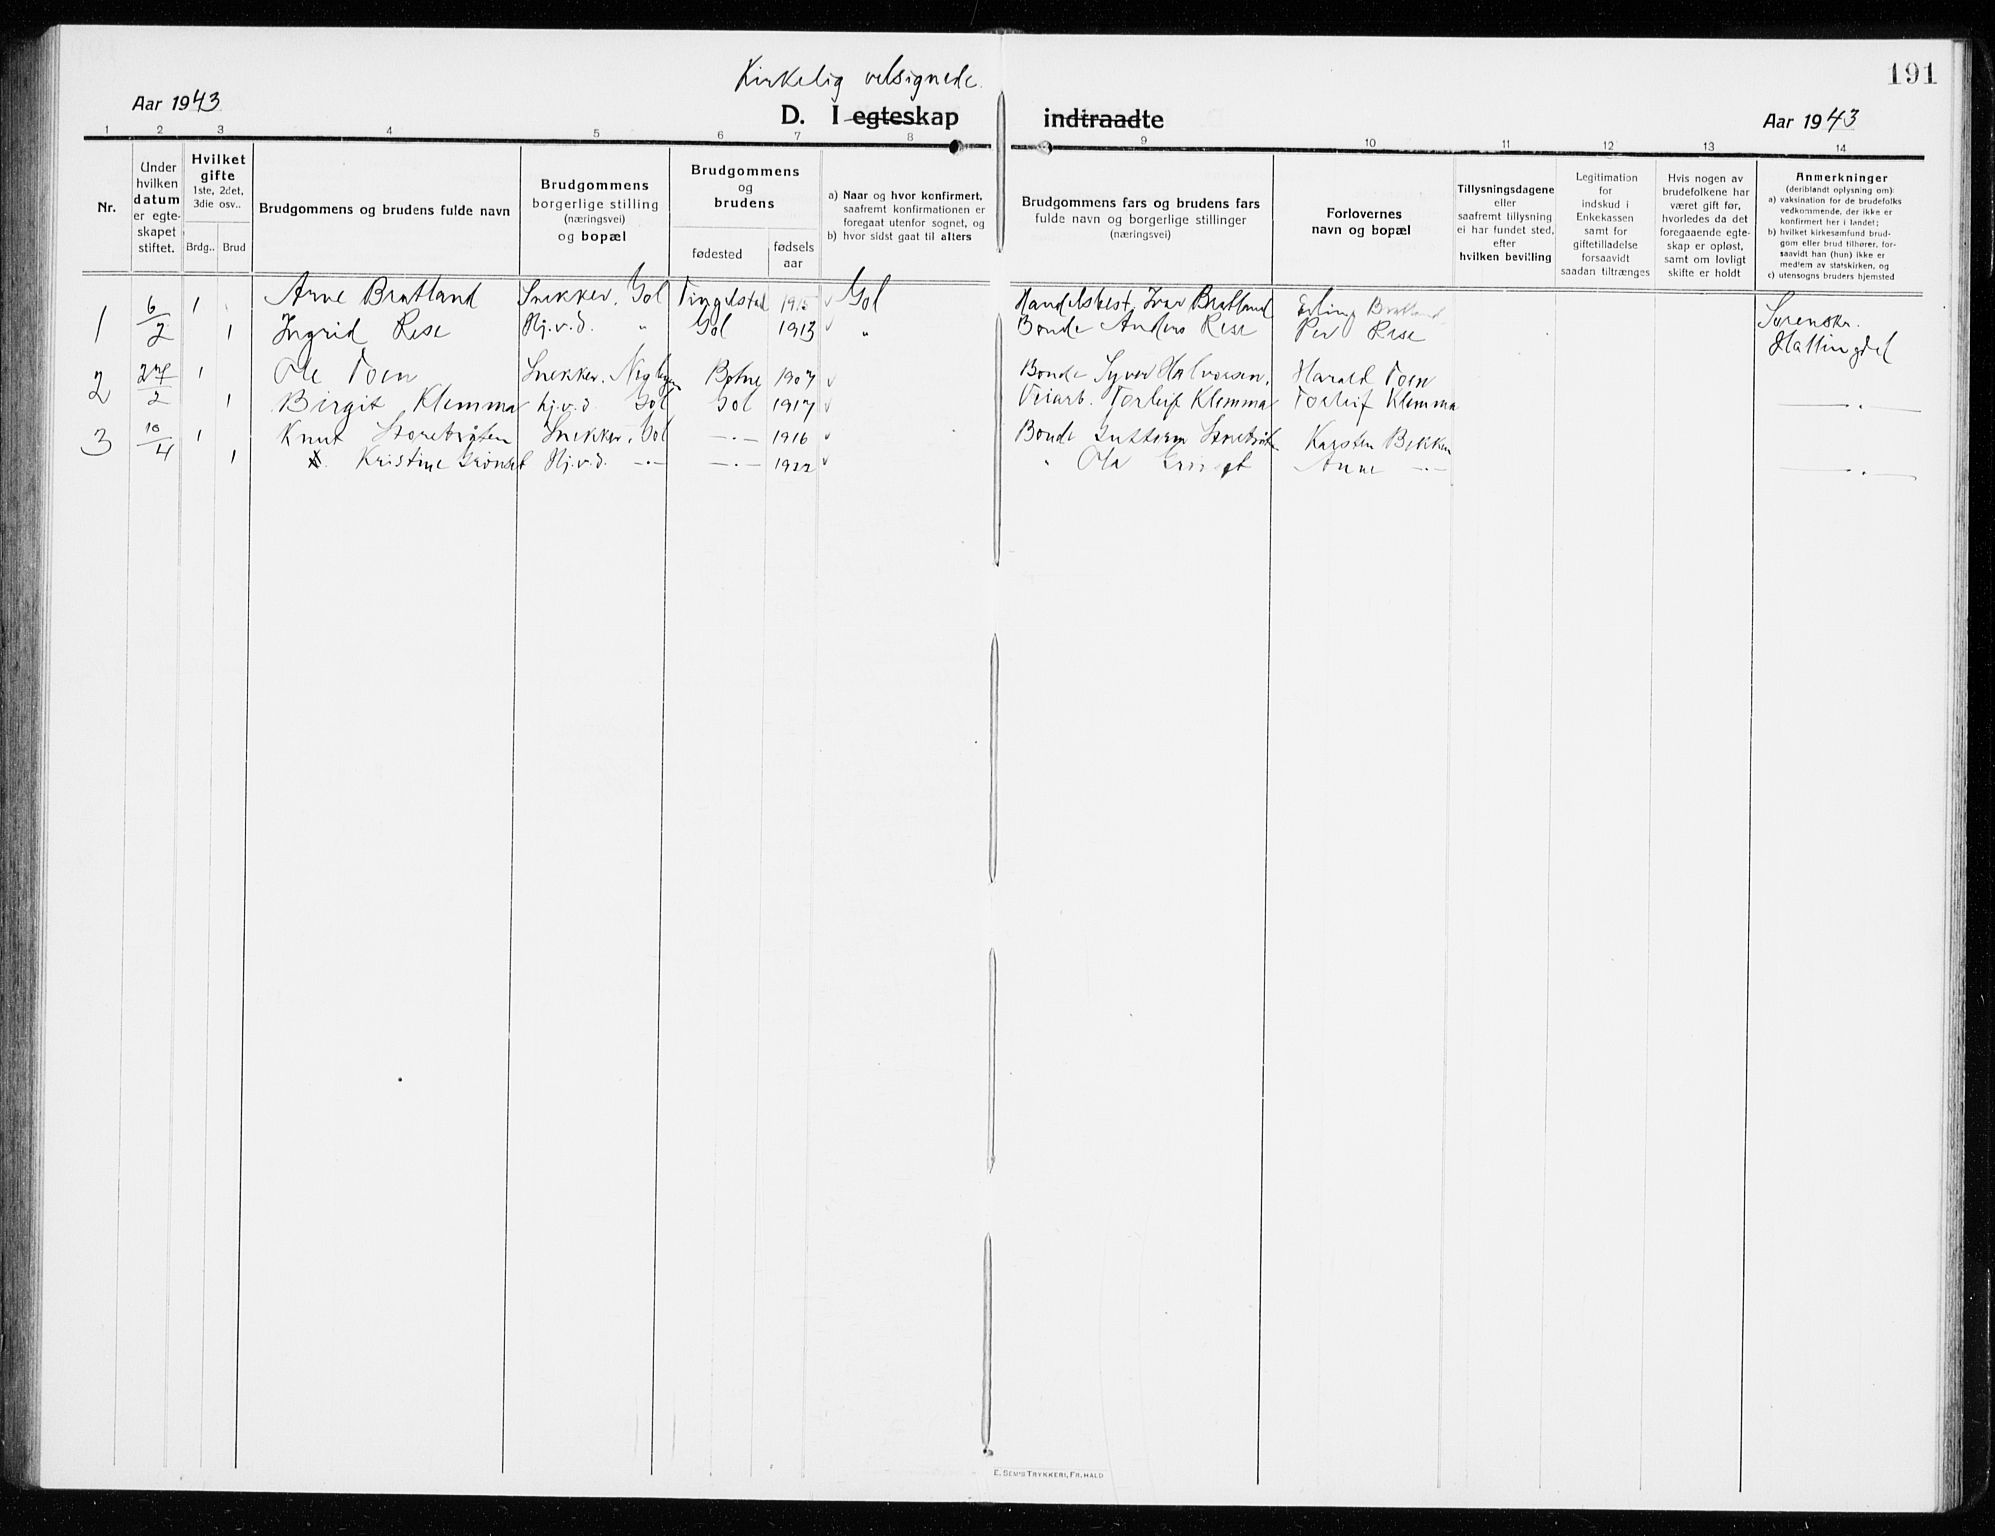 Kirkelig velsignede.
191
Aar 1943
D. I egteskap indtraadte
Aar 1943
1 2 3 4 5 6 7 8 9 10 11 12 13 14
Nr.
Under hvilken datum er egte-skapet stiftet.
Hvilket gifte
1ste, 2det, 3die osv..
Brdg.. Brud
Brudgommens og brudens fulde navn
Brudgommens borgerlige stilling (næringsvei) og bopæl
Brudgommens og brudens
fødested
fødsels aar
a) Naar og hvor konfirmert, saafremt konfirmationen er foregaat utenfor sognet, og
b) hvor sidst gaat til alters
Brudgommens fars og brudens fars fulde navn og borgerlige stillinger (næringsvei)
Forlovernes navn og bopæl
Tillysningsdagene eller saafremt tillysning ei har fundet sted, efter hvilken bevilling
Legitimation for indskud i Enkekassen samt for giftetilladelse forsaavidt saadan tiltrænges
Hvis nogen av brudefolkene har været gift før, hvorledes da det foregaaende egte-skap er opløst, samt om lovligt skifte er holdt
Anmerkninger
(deriblandt oplysning om):
a) vaksination for de brudefolks vedkommende, der ikke er konfirmert her i landet;
b) hvilket kirkesamfund brud-gom eller brud tilhører, for-saavidt han (hun) ikke er medlem av statskirken, og
c) utensogns bruders hjemsted
1 6/2 1 Arne Bratland Snekker. Gol Tingelstad 1915 Gol Handelsbest. Ivar Bratland Erling Bratland Sorenskr.
1 Ingrid Rese Hj.v.d. " Gol 1913 " Bonde Anders Rese Per Rese Hallingdal
2 27/2 1 Ole Toen Snekker. Botne 1907 Bonde Syver Halvorsen. Harald Toen
1 Birgit Klemma hj.v.d. Gol Gol 1917 Veiarb. Torleif Klemma Torleif Klemma —.—
3 10/4 1 Knut Storebråten Snekker. Gol —.— 1916 Bonde Guttorm Storebråt Karsten Bekken
1 Kristine Grønset Hj.v.d. —.— —.— 1922 " Ola Anne —.— —.—
E. SEM'S TRYKKERI, FR.HALD